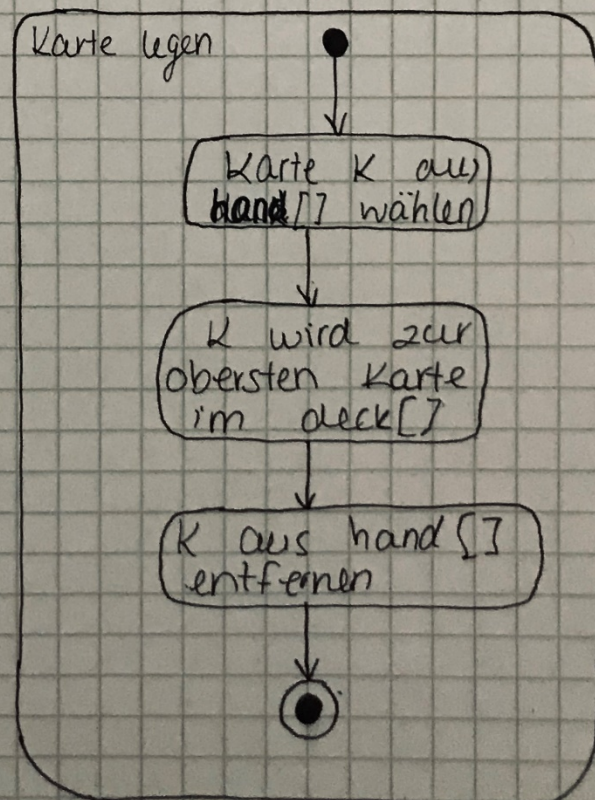 Karte legen
Karte K aus
hand[] wählen
K wird zur
obersten Karte
im deck[]
K aus hand[]
entfernen